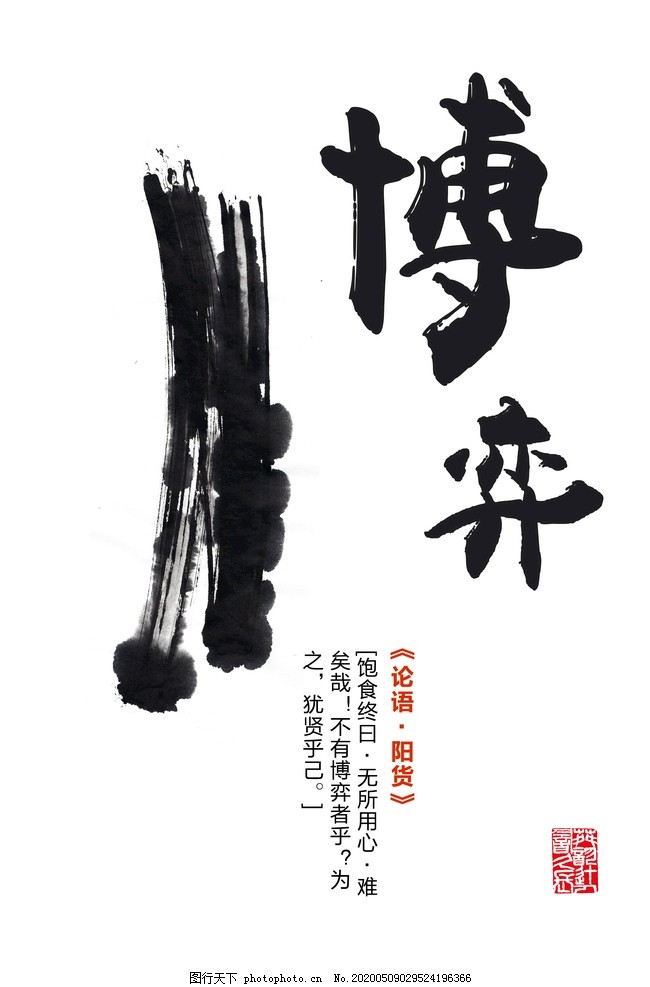 博弈
《论语·阳货》
[饱食终日·无所用心·难
矣哉！不有博弈者乎？为
之，犹贤乎己。]
图行天下 photophoto.cn No.20200509029524196366